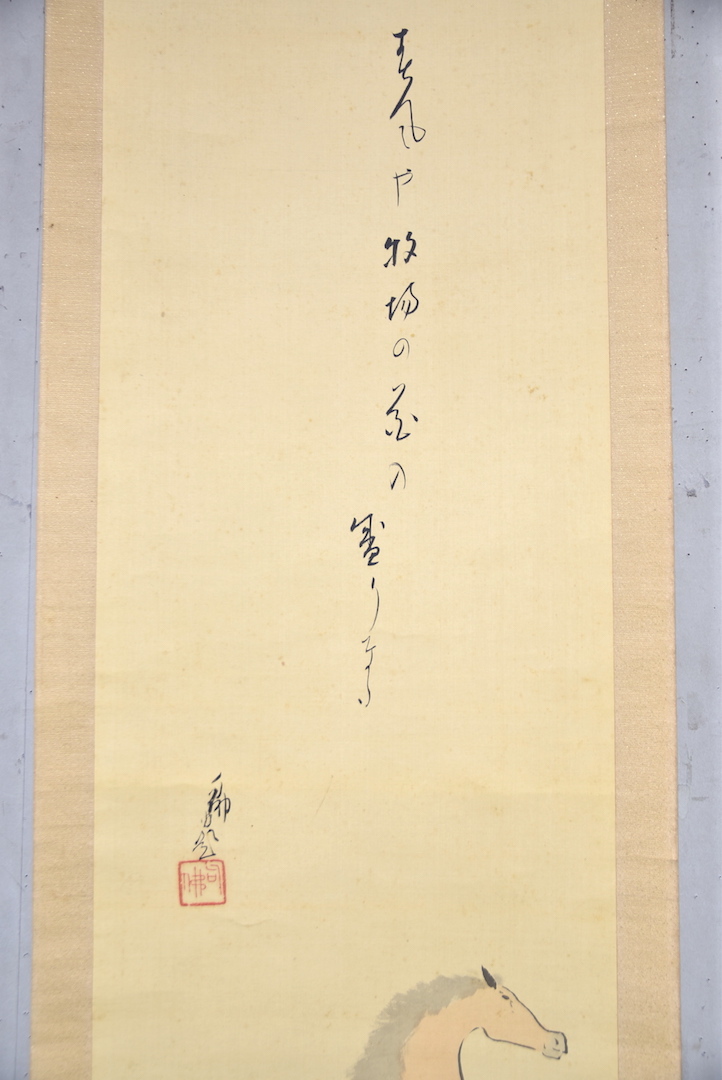 春風や牧場の花の盛りなる
句佛